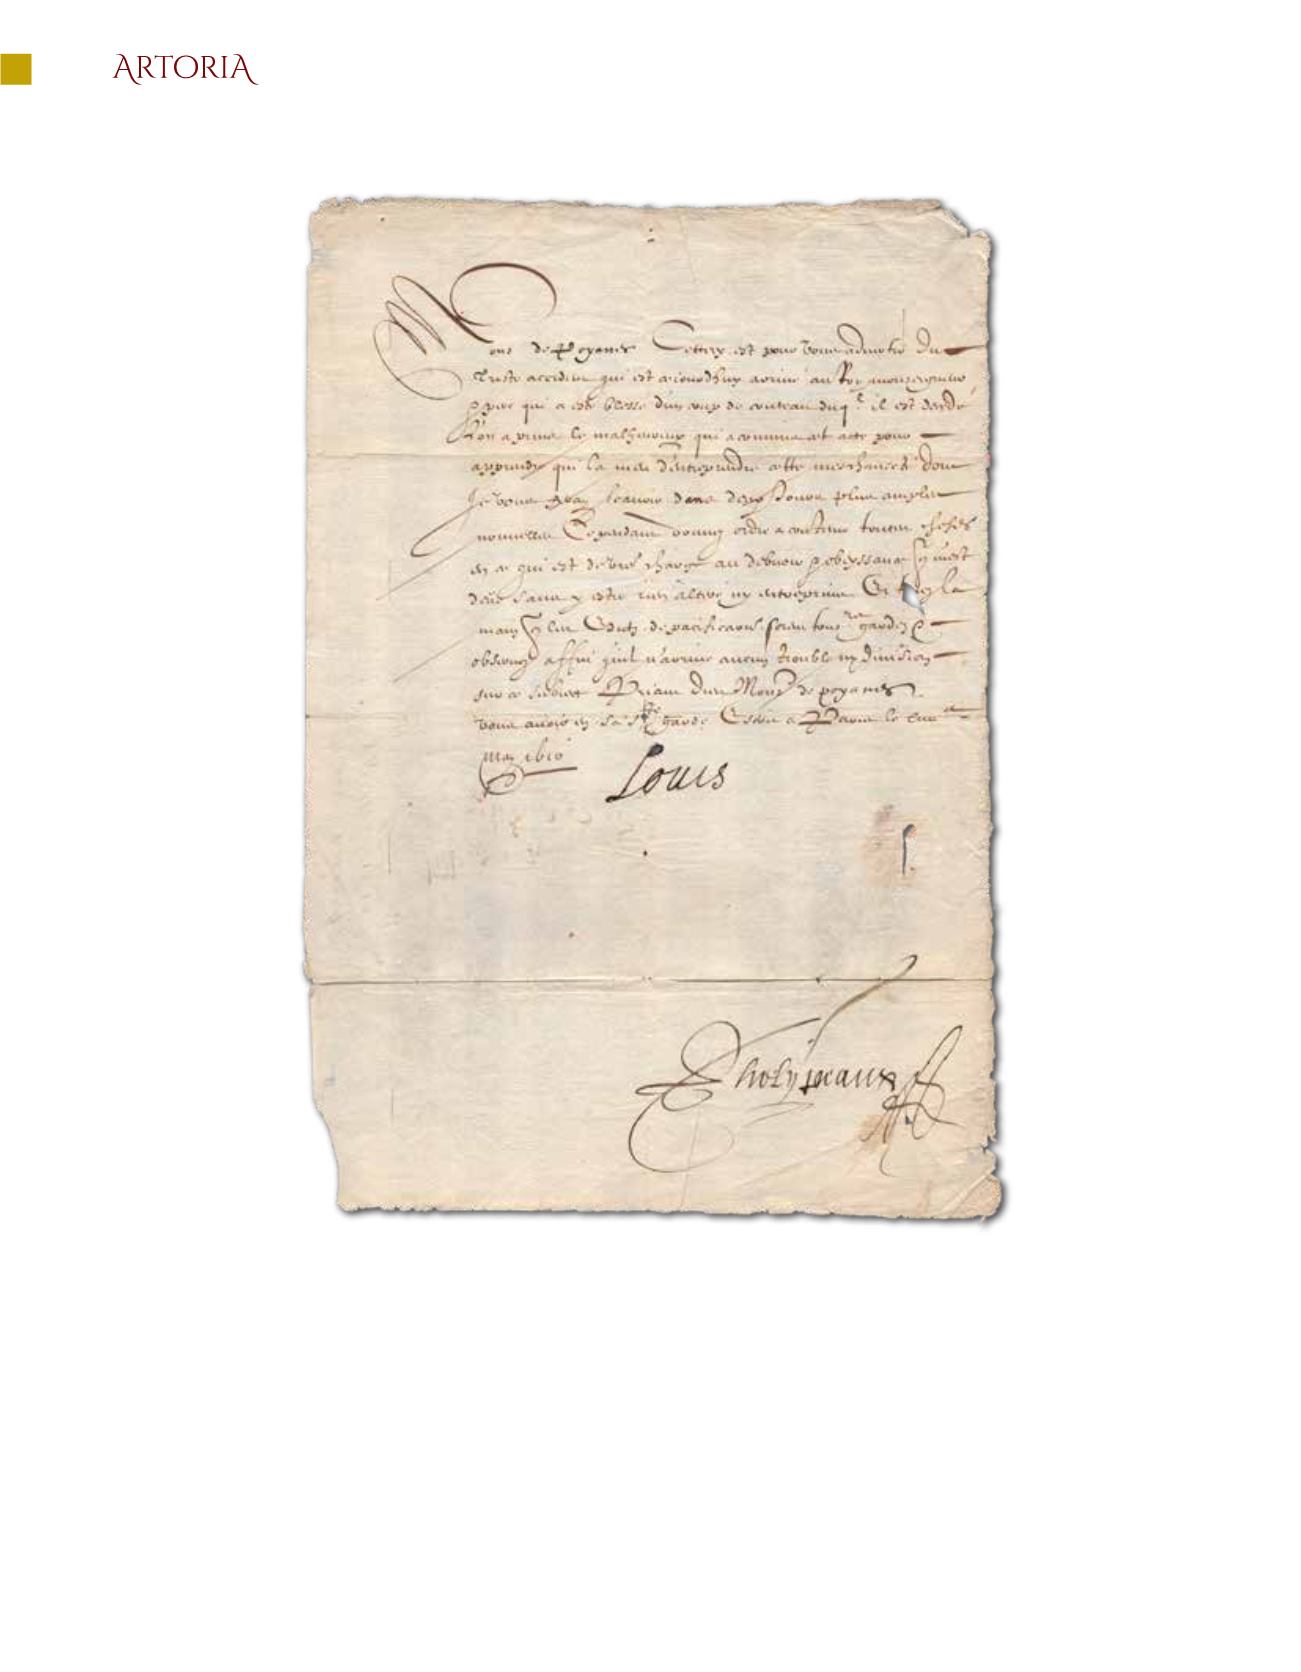 ARTORIA
Mons de Poyanes Cettecy est pour vous advertir du
triste accident qui est aiourdhuy arrivé au Roy monseigneur
& pere qui a esté blessé d'un coup de couteau duql il est deccdé
L'on a prins le malheureux qui a commis cet acte pour
apprendre qui la meu d'entreprendre cette meschanceté dont
Je vous feray scavoir dans deux Jours plus amples
nouvelles Cependant donnez ordre a contenir toutes choses
en ce qui est de vre charge au debvoir & obeyssance qui m'est
deüe sans y estre rien alteré ny entreprins Et la
main que les Edictz de pacificaon soient tousiours gardez &
observez affin quil n'arrive aucun trouble ny division
sur ce subiect Priant Dieu Mons de poyanes
vous avoir en sa ste garde Escrit a Paris le
May 1610
Louis
Phelypeaux